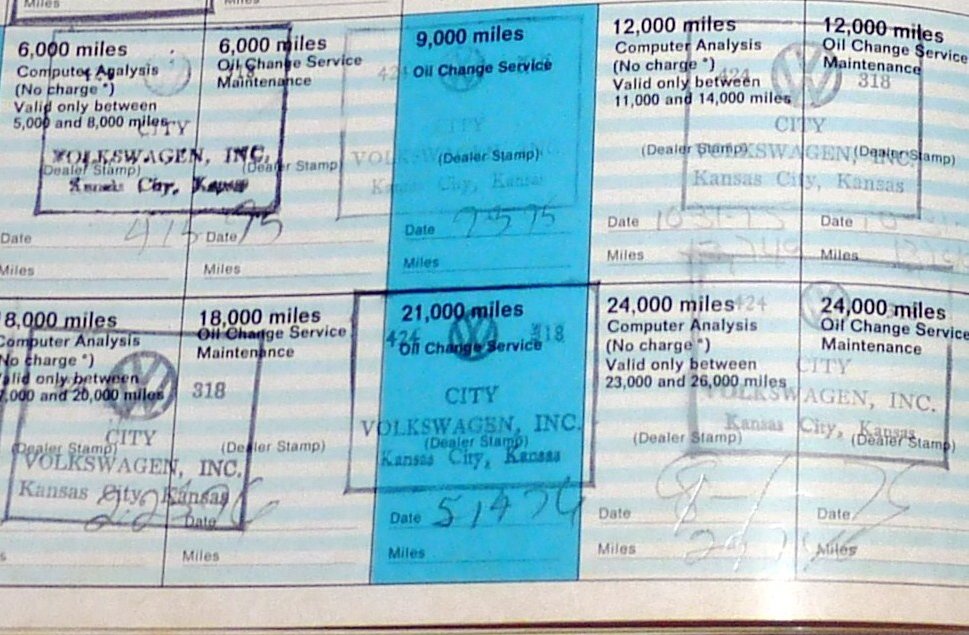 Miles
Miles
6,000 miles
Computer Analysis
(No charge *)
Valid only between
5,000 and 8,000 miles
CITY
VOLKSWAGEN, INC.
(Dealer Stamp)
Kansas City, Kansas
Date
Miles
6,000 miles
Oil Change Service
Maintenance
318
(Dealer Stamp)
Date 75
Miles
9,000 miles
Oil Change Service
CITY
VOLKSWAGEN, INC.
(Dealer Stamp)
Kansas City, Kansas
Date 7 3 75
Miles
12,000 miles
Computer Analysis
(No charge *)
424
Valid only between
11,000 and 14,000 miles
CITY
(Dealer Stamp)
VOLKSWAGEN, INC.
Kansas City, Kansas
Date 10 31-75
Miles
12,000 miles
Oil Change Service
Maintenance
318
(Dealer Stamp)
Date
Miles
8,000 miles
Computer Analysis
No charge *)
alid only between
7,000 and 20,000 miles
CITY
(Dealer Stamp)
VOLKSWAGEN, INC.
Kansas City, Kansas
s
18,000 miles
Oil Change Service
Maintenance
318
(Dealer Stamp)
Date
Miles
21,000 miles
424 318
Oil Change Service
CITY
VOLKSWAGEN, INC.
(Dealer Stamp)
Kansas City, Kansas
Date 5 14 76
Miles
24,000 miles
424
Computer Analysis
(No charge *)
Valid only between
23,000 and 26,000 miles
CITY
VOLKSWAGEN, INC.
Kansas City, Kansas
(Dealer Stamp)
Date
Miles
24,000 miles
Oil Change Service
Maintenance
(Dealer Stamp)
Date
Miles